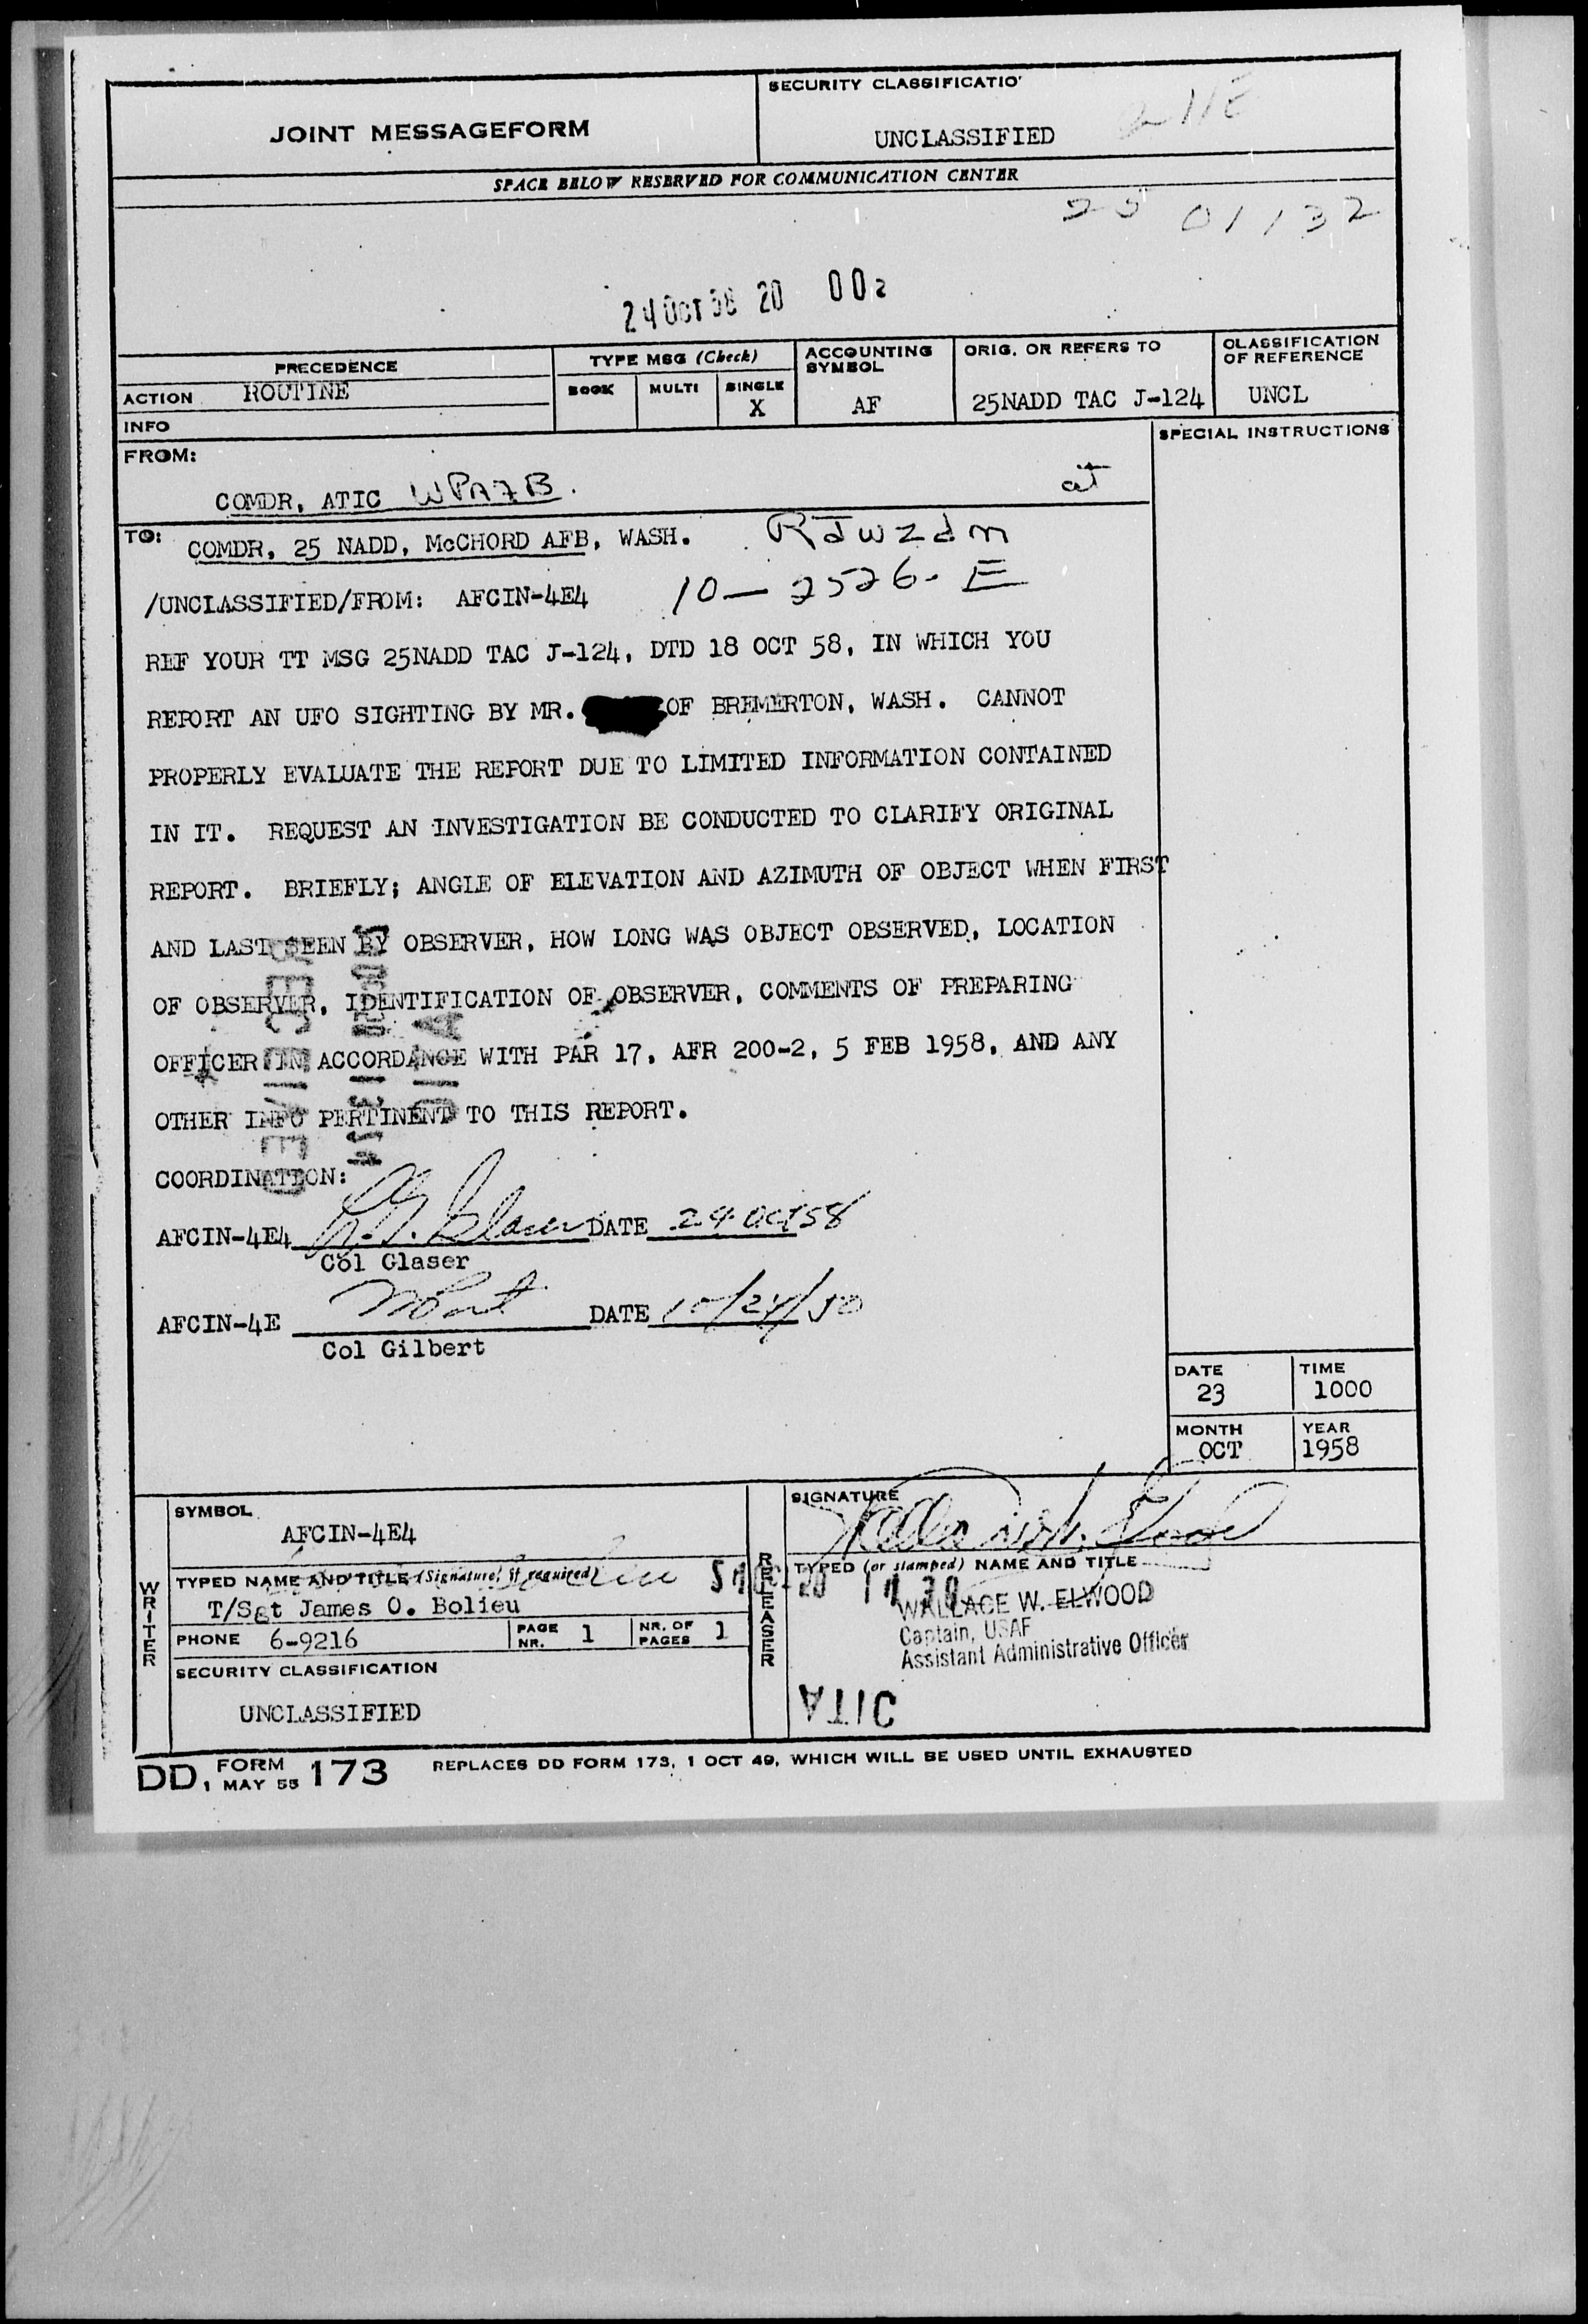 SECURITY CLASSIFICATIO
JOINT MESSAGEFORM
UNCLASSIFIED
SPACE BELOW RESERVED FOR COMMUNICATION CENTER
24 OCT 58 20 00z
PRECEDENCE
TYPE MSG (Check)
ACCOUNTING SYMBOL
ORIG. OR REFERS TO
CLASSIFICATION OF REFERENCE
ACTION ROUTINE
BOOK MULTI SINGLE
X
AF
25NADD TAC J-124
UNCL
INFO
FROM:
SPECIAL INSTRUCTIONS
COMDR, ATIC WPAFB.
TO: COMDR, 25 NADD, McCHORD AFB, WASH.
/UNCLASSIFIED/FROM: AFCIN-4E4 10-2526-E
REF YOUR TT MSG 25NADD TAC J-124, DTD 18 OCT 58, IN WHICH YOU
REPORT AN UFO SIGHTING BY MR. OF BREMERTON, WASH. CANNOT
PROPERLY EVALUATE THE REPORT DUE TO LIMITED INFORMATION CONTAINED
IN IT. REQUEST AN INVESTIGATION BE CONDUCTED TO CLARIFY ORIGINAL
REPORT. BRIEFLY; ANGLE OF ELEVATION AND AZIMUTH OF OBJECT WHEN FIRST
AND LAST SEEN BY OBSERVER, HOW LONG WAS OBJECT OBSERVED, LOCATION
OF OBSERVER, IDENTIFICATION OF OBSERVER, COMMENTS OF PREPARING
OFFICER IN ACCORDANCE WITH PAR 17, AFR 200-2, 5 FEB 1958, AND ANY
OTHER INFO PERTINENT TO THIS REPORT.
COORDINATION:
AFCIN-4E4 DATE 24 Oct 58
Col Glaser
AFCIN-4E DATE
Col Gilbert
DATE 23
TIME 1000
MONTH OCT
YEAR 1958
SYMBOL
AFCIN-4E4
SIGNATURE
TYPED NAME AND TITLE (Signature, if required)
T/Sgt James O. Bolieu
TYPED (or stamped) NAME AND TITLE
WALLACE W. ELWOOD
Captain, USAF
Assistant Administrative Officer
WRITER
RELEASER
PHONE 6-9216
PAGE NR. 1
NR. OF PAGES 1
SECURITY CLASSIFICATION
UNCLASSIFIED
ATIC
DD, FORM MAY 55 173 REPLACES DD FORM 173, 1 OCT 49, WHICH WILL BE USED UNTIL EXHAUSTED